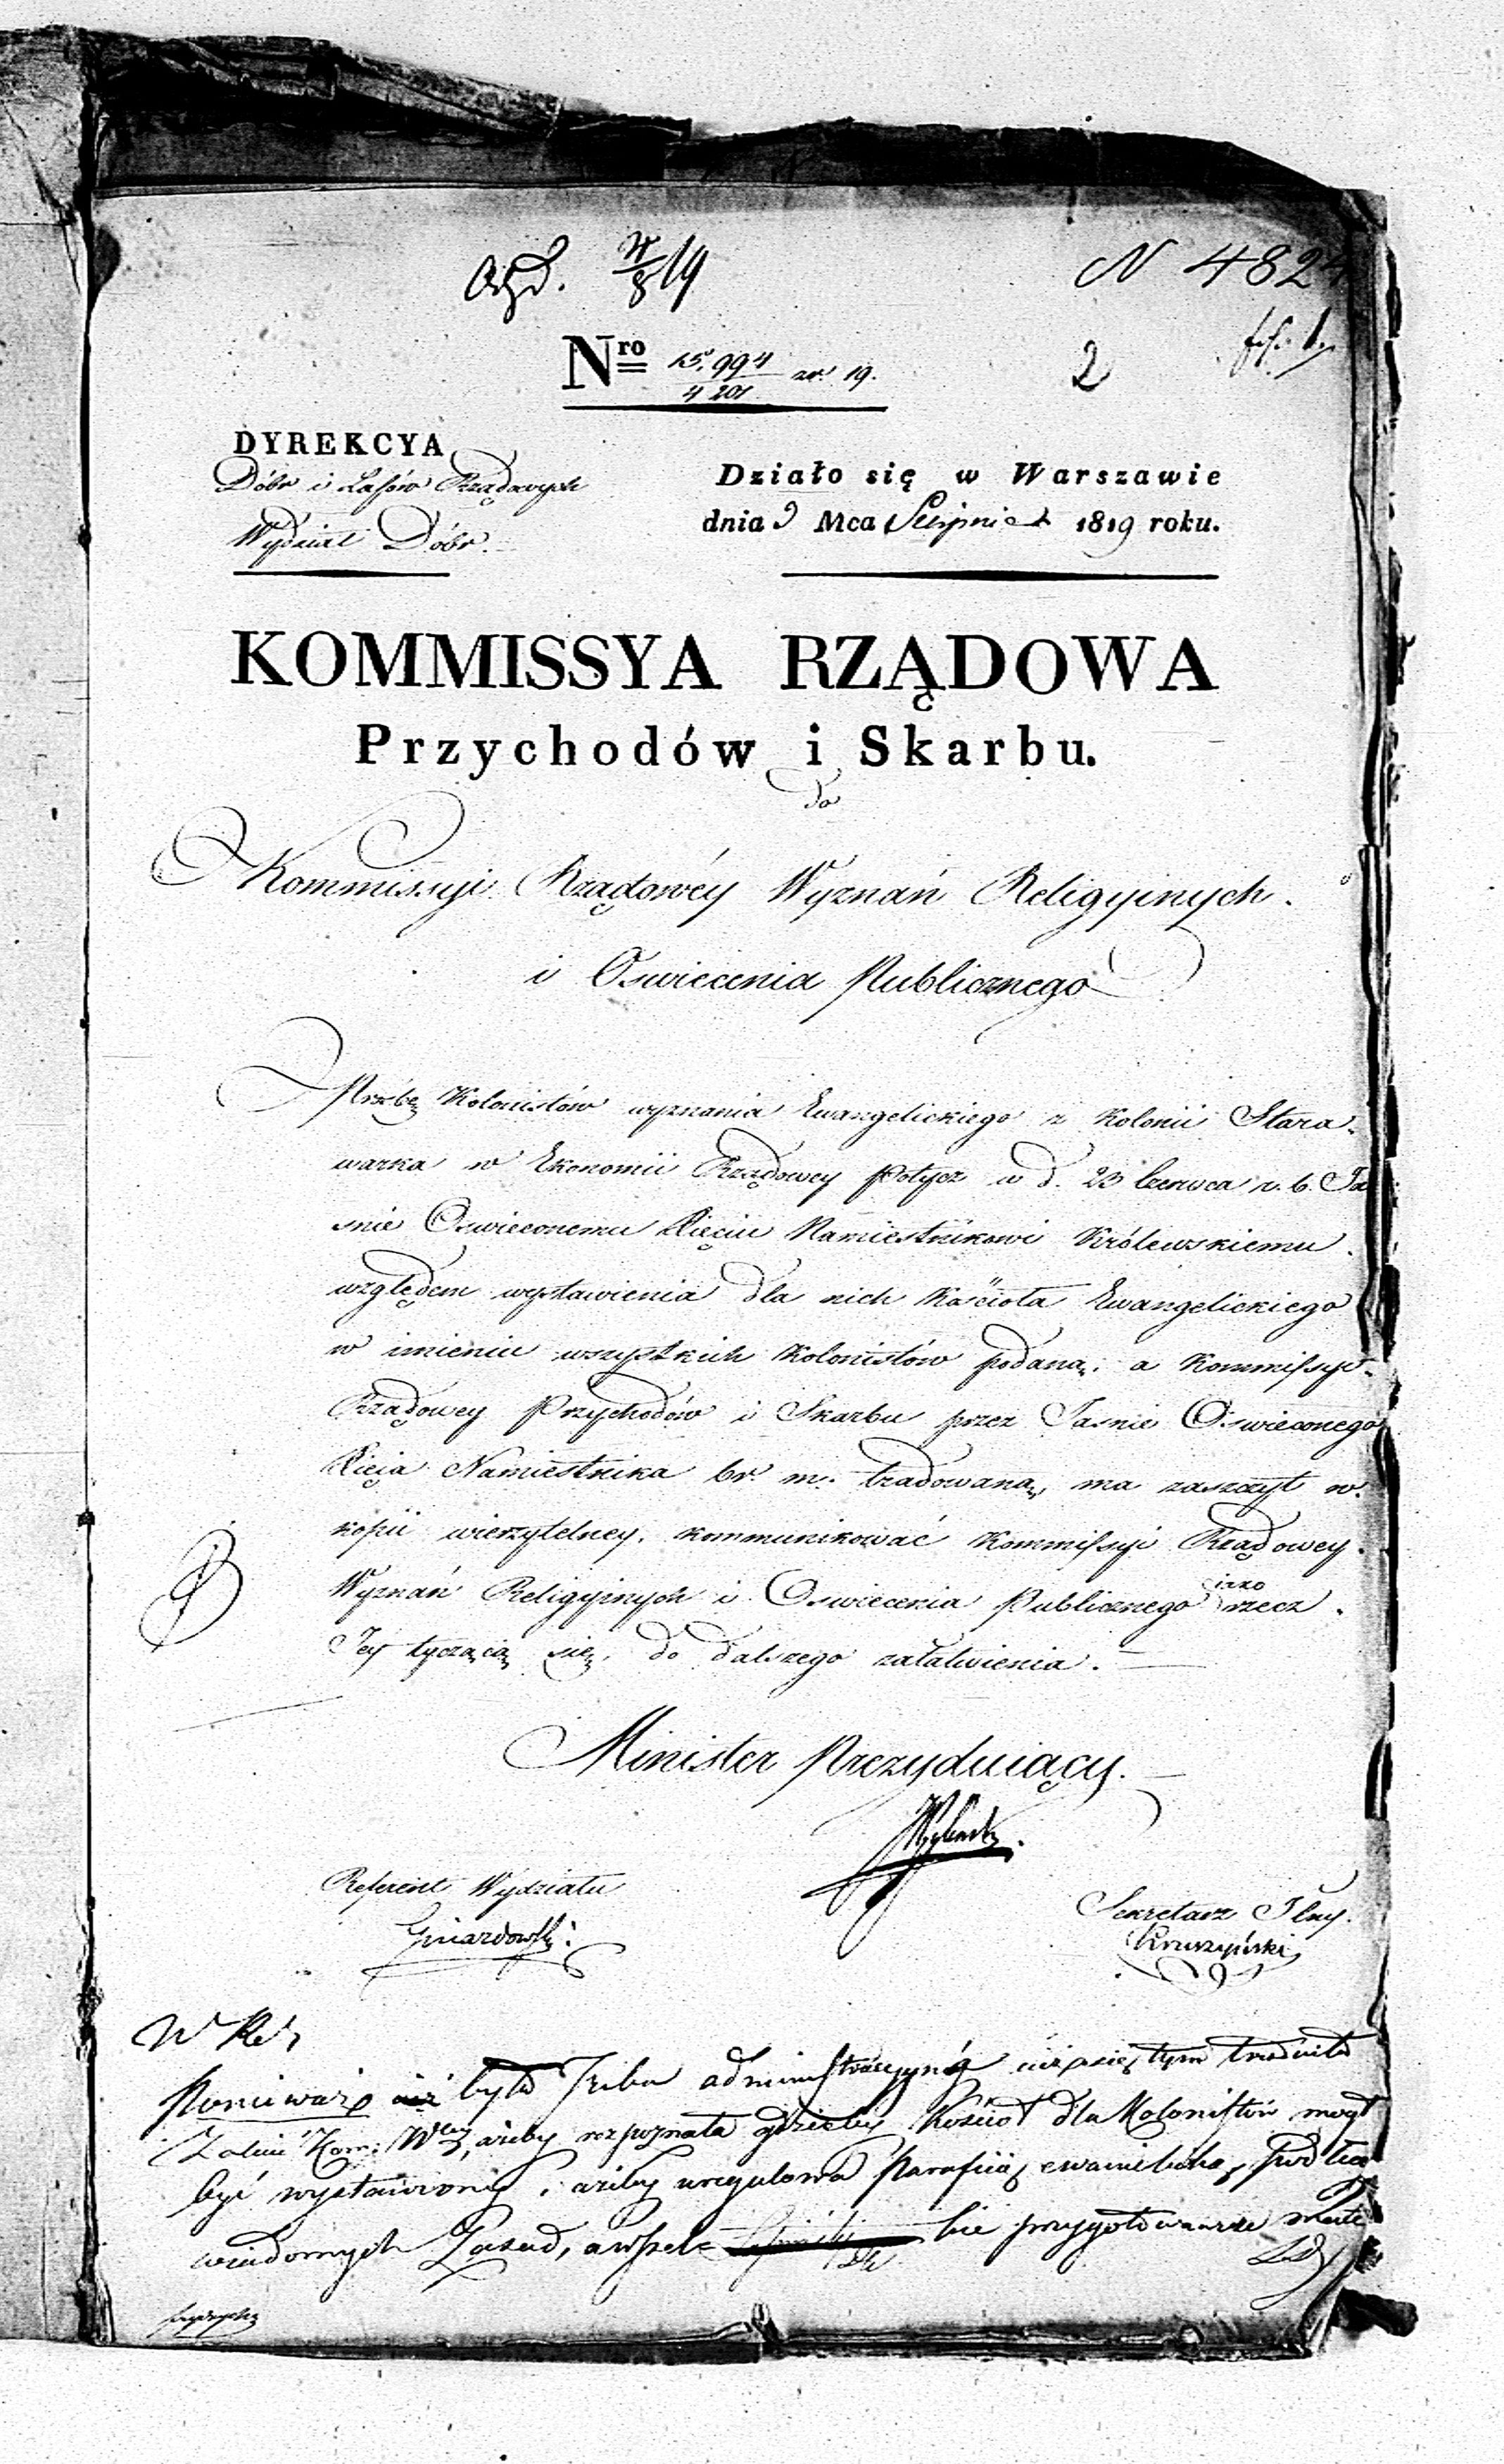 N 482
Nro 15,994/4201 zr. 19.
2
DYREKCYA
Dóbr i Lasów Rządowych
Wydział Dóbr.
Działo się w Warszawie
dnia 9 Mca Sierpnia 1819 roku.
KOMMISSYA RZĄDOWA
Przychodów i Skarbu.
do
Kommissyi Rządowéy Wyznań Religyinych
i Oswiecenia Publicznego
Prozbę Kolonistów wyznania Ewangelickiego z Kolonii Stara
warka w Ekonomii Rządowey Potycz w d. 23 Czerwca r. b. Ja
snie Oswieconemu Xięciu Namiestnikowi Królewskiemu
względem wystawienia dla nich Kościoła Ewangelickiego
w imieniu wszystkich Kolonistów podaną, a Kommissyi
Rządowey Przychodów i Skarbu przez Jasnie Oswieconego
Xięcia Namiestnika br. m. tradowaną, ma zaszczyt w
kopii wierzytelney, kommunikować Kommissyi Rządowey
Wyznań Religyinych i Oswiecenia Publicznego jako rzecz
Jey tyczącą się, do dalszego załatwienia.
Minister Prezyduiący.
Referent Wydziału
Gniazdowski
Sekretarz Jlny.
Kruszyński
Ponieważ była Izba administracyyną się tym trudniła
Zalecić Kom: ażeby rozpoznała gdzieby Kościoł dla Kolonistów mogł
być wystawiony, i ażeby uregulowa Parafiią podług
wiadomych Zasad,